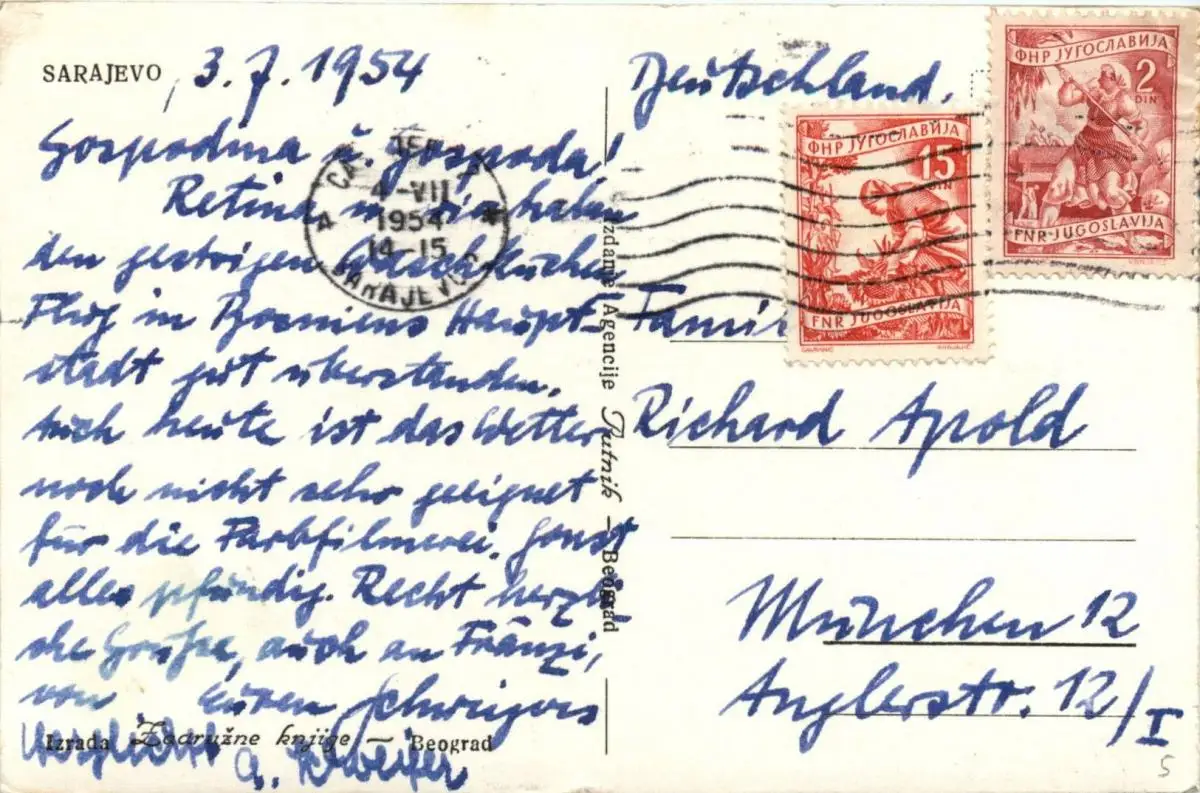 SARAJEVO 3.7.1954
Gospodina u. Gospoda!
Retina u. wir haben
den gestrigen abscheulichen
Flug in Bosniens Haupt-
stadt gut überstanden.
Auch heute ist das Wetter
noch nicht sehr geeignet
für die Farbfilmerei. Sonst
alles pfundig. Recht herzli
che Grüße, auch an Fränzi,
von Euren Schweigers
Izrada Zadružne knjige — Beograd
A. Schweiger
4-VII
1954
14-15
SARAJEVO
Izdanje Agencije Putnik — Beograd
Deutschland.
ФНР ЈУГОСЛАВИЈА
15
DIN
FNR JUGOSLAVIJA
ФНР ЈУГОСЛАВИЈА
2
DIN
FNR JUGOSLAVIJA
Famil
Richard Apold
München 12
Anglerstr. 12/I
5